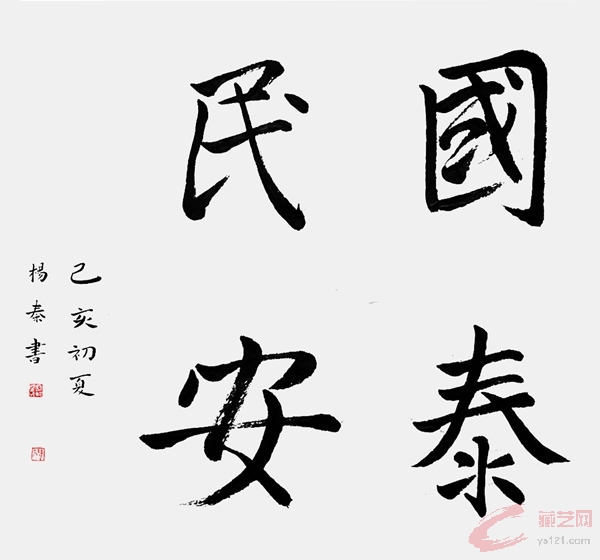 國泰
民安
己亥初夏
楊秦書
藏艺网
ys121.com